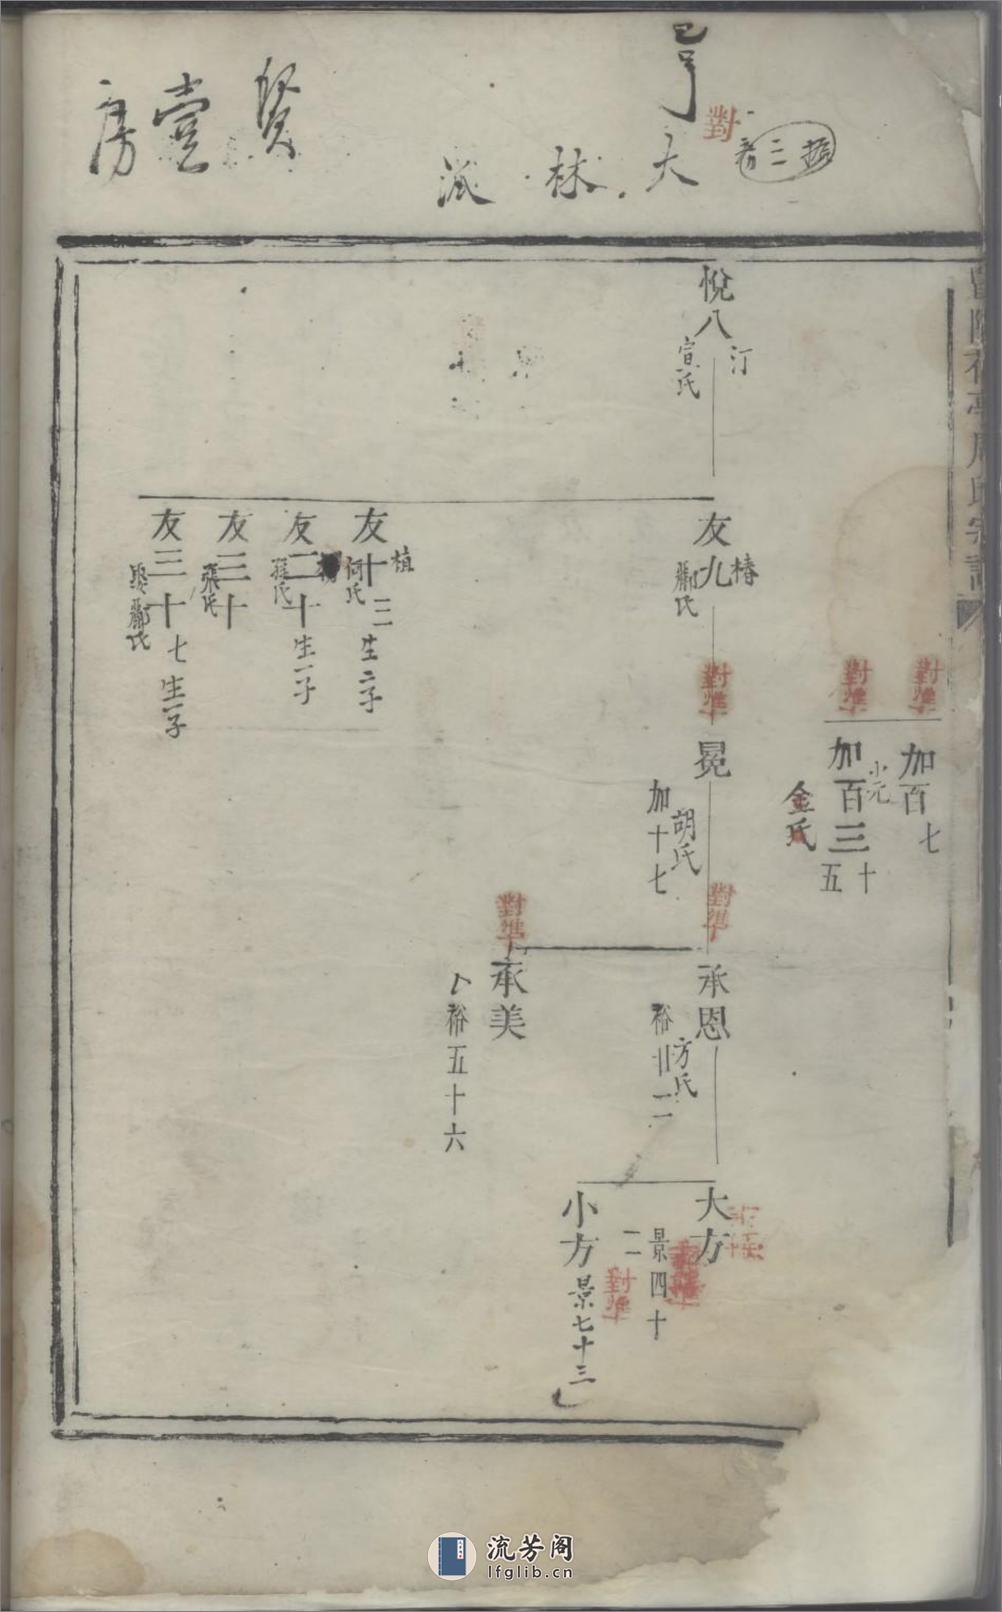 對
大林派
賢壹房
加百七
小元
加百三十五
金氏
對準
對準
悅八
汀
宣氏
友九
椿
酈氏
對準
冕
胡氏
加十七
對準
承恩
方氏
裕廿二
大方
景四十二
對準
小方
景七十三
對準
承美
裕五十六
對準
友十三
植
何氏
生二子
友二十
生一子
友三十
張氏
友三十七
酈氏
生一子
流芳阁
lfglib.cn